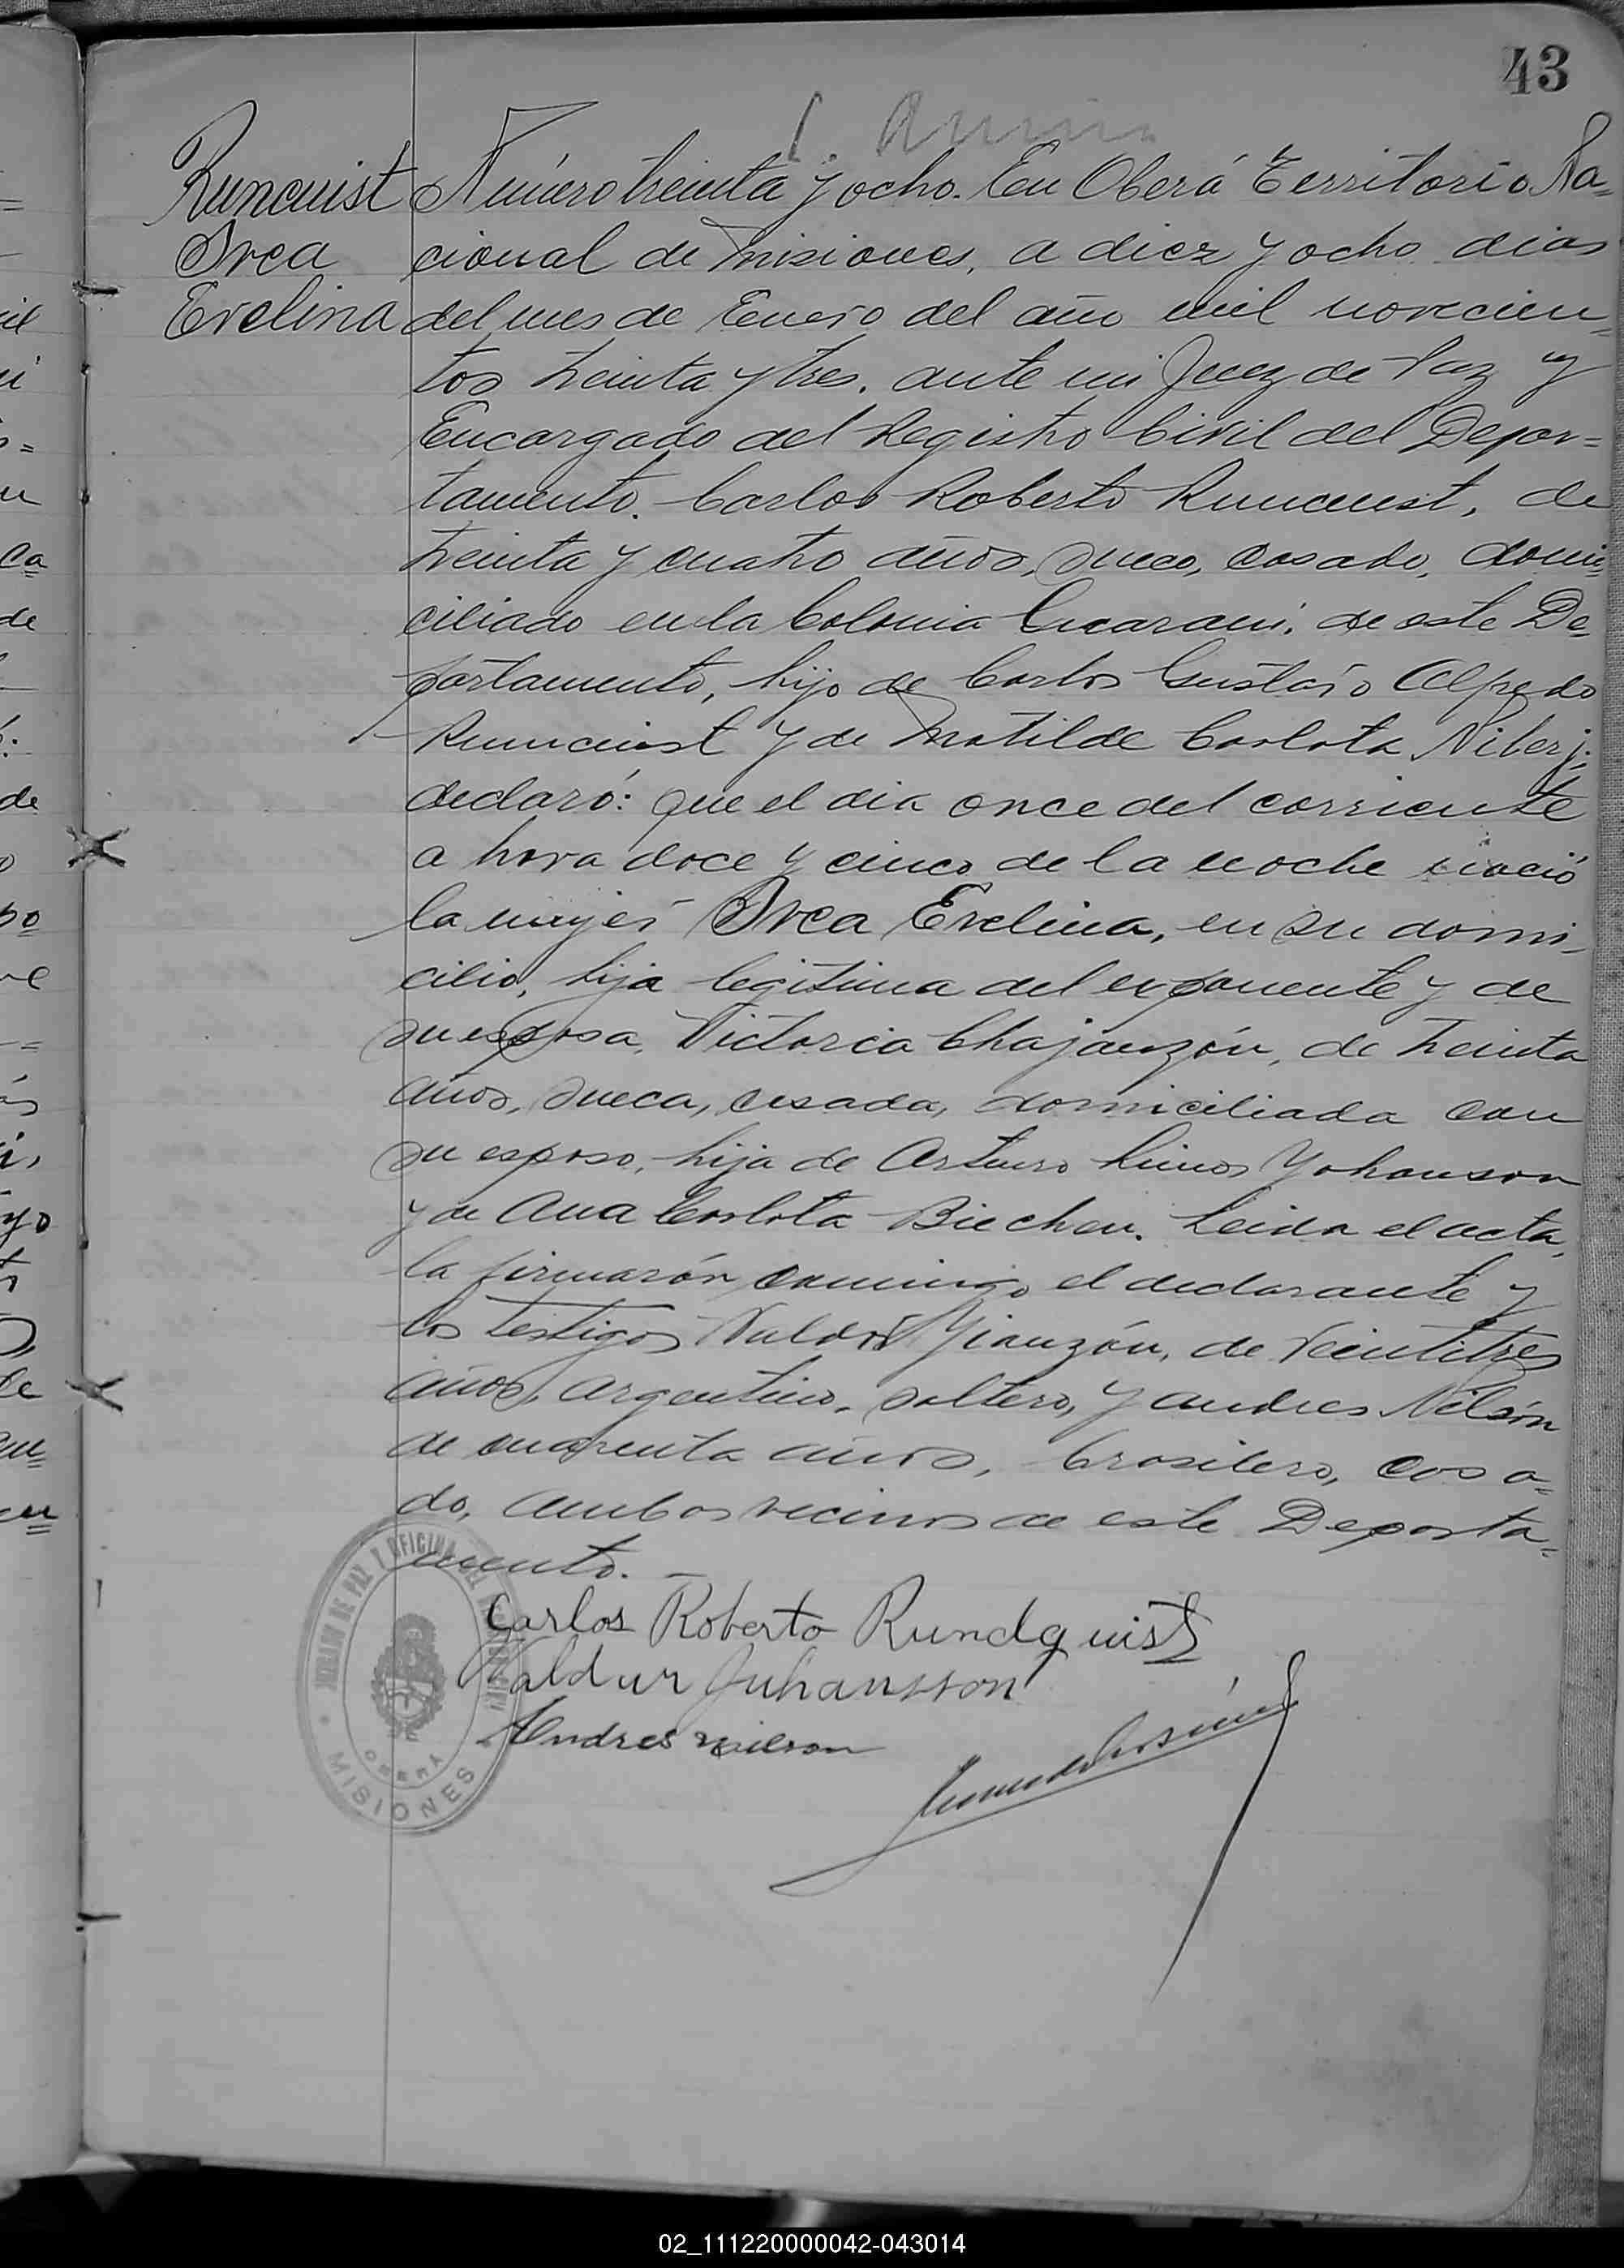 43
Runcuist
Svea
Evelina
Número treinta y ocho. En Oberá Territorio Na=
cional de Misiones, a diez y ocho dias
del mes de Enero del año mil novecien=
tos treinta y tres, ante mi Juez de Paz y
Encargado del Registro Civil del Depar=
tamento. Carlos Roberto Runcuist, de
treinta y cuatro años, sueco, casado, domi=
ciliado en la Colonia Guarani, de este De=
partamento, hijo de Carlos Gustavo Alfredo
Runcuist y de Matilde Carlota Niberj.
declaró: que el dia once del corriente
a hora doce y cinco de la noche nació
la mujer Svea Evelina, en su domi=
cilio, hija legitima del exponente y de
su esposa, Victoria Chajanzón, de treinta
años, sueca, casada, domiciliada con
su esposo, hija de Arturo Linos Yohanson
y de Ana Carlota Biechen. Leida el acta,
la firmarón conmigo el declarante y
los testigos Valdor Yianzón, de veintitres
años, argentino, soltero, y Andres Nelsón
de cuarenta años, brasilero, casa=
do, ambos vecinos de este Departa=
mento. —
Carlos Roberto Rundquist
Valdur Juhansson
Andres Nilson
JUZGADO DE PAZ Y OFICINA DEL REGISTRO CIVIL
OBERÁ
MISIONES
02_111220000042-043014